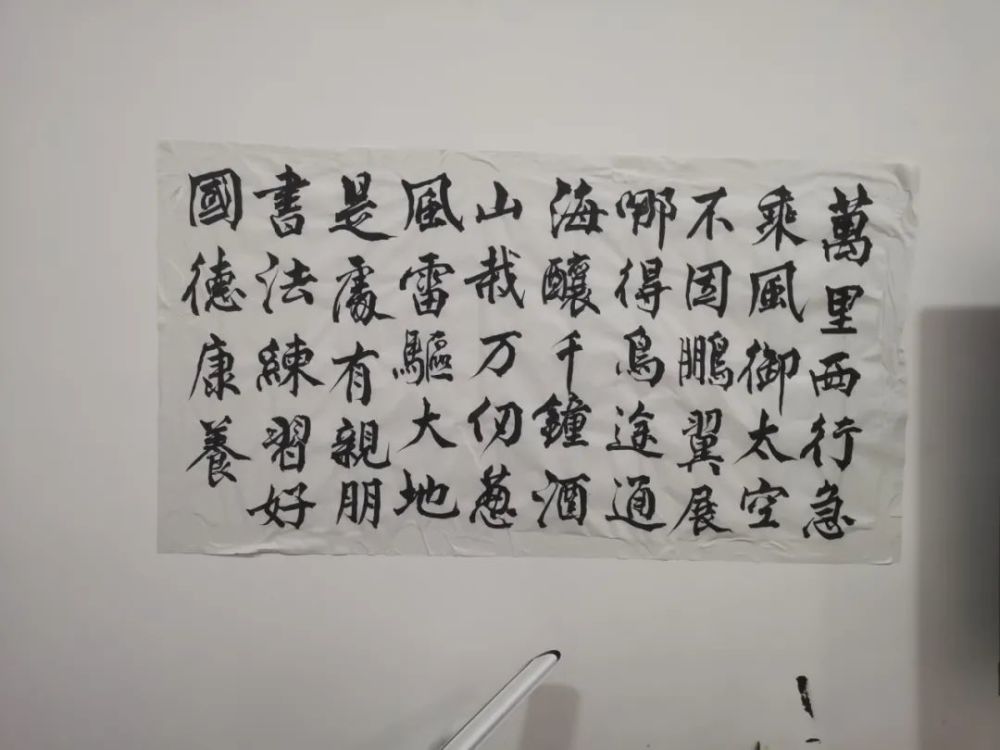 萬里西行急
乘風御太空
不因鵬翼展
哪得鳥途通
海釀千鐘酒
山栽万仞葱
風雷驅大地
是處有親朋
書法練習好
國德康養